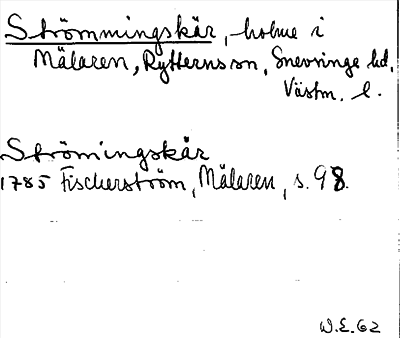 Strömmingskär, holme i
Mälaren, Rytterns sn, Snevringe hd,
Västm. l.
Strömingskär
1785 Fischerström, Mälaren, s. 98.
W.E. 62